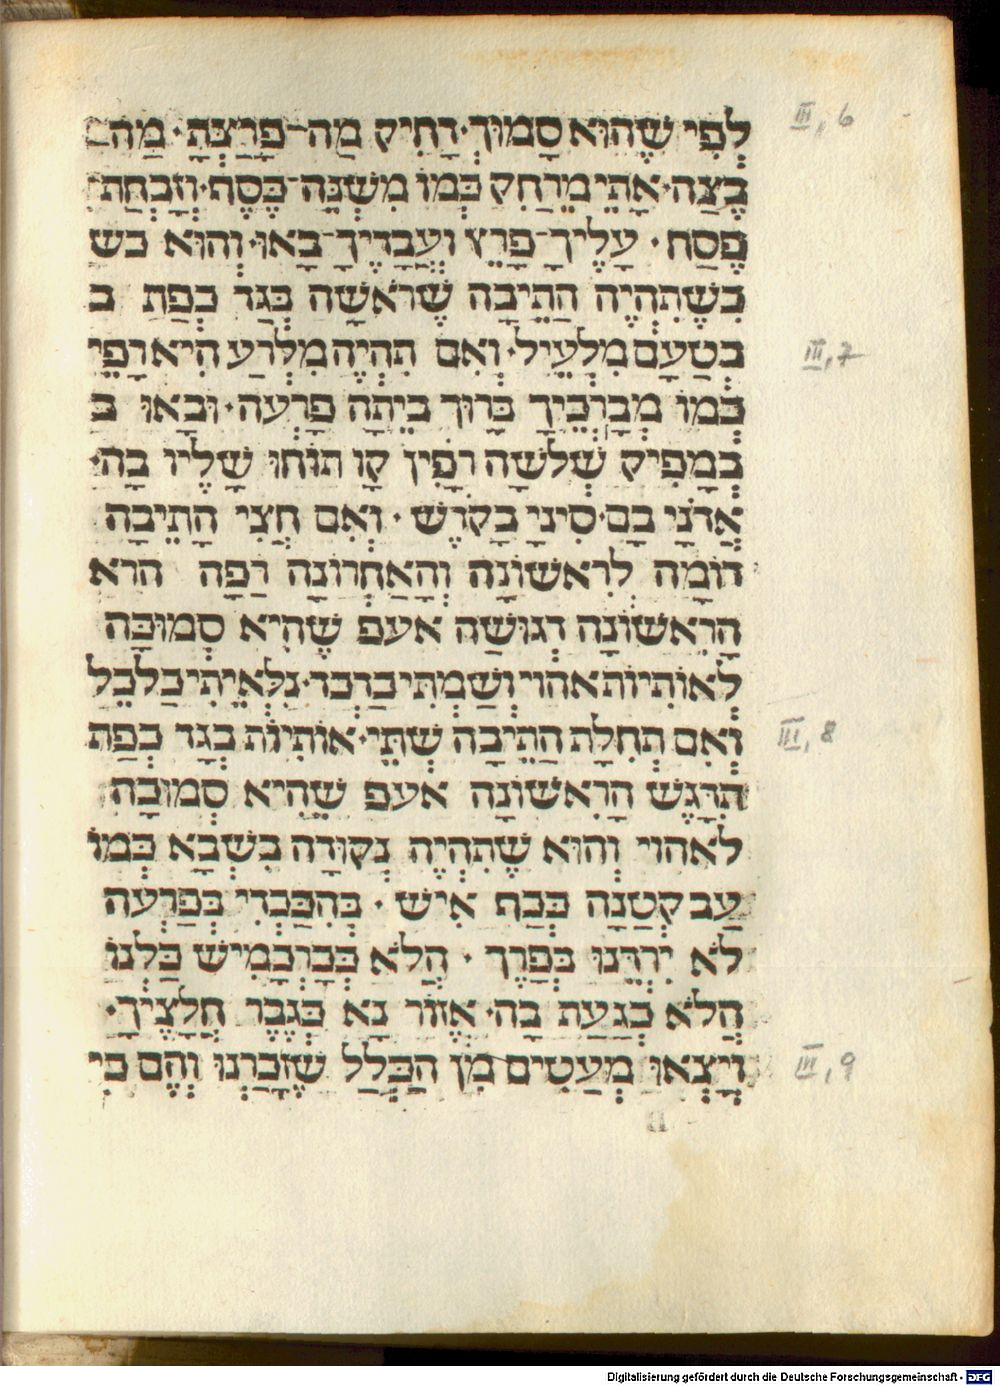 לְפִי שֶׁהוּא סָמוּךְ· דָחִיק מַה־פָּרַצְתָּ· מַה־
בֶּצַה· אָתֵי מֵרַחִק כְּמוֹ מִשְׁנֵה־כֶּסֶף· וְזָבַחְתָּ
פֶּסַח · עָלֶיךָ־פָּרֶץ וַעֲבָדֶיךָ־בָּאוּ· וְהוּא כש
כְּשֶׁתִהְיֶה הַתֵיבָה שֶׁרֹאשָׁה בְּגַד כְּפַת ב
בְטַעַם מִלְעֵיל· וְאִם תִהְיֶה מִלְרַע הִיא רָפֶה
כְּמוֹ מְבָרְכֶיךָ בָרוּךְ בֵיתָה פַרְעֹה· וּבָאוּ ב
בְמַפִיק שְׁלשָׁה רָפִין קַו תוֹהוּ שָׁלֵיו בָהּ·
אֲדֹנָי בָם· סִינַי בַקֹדֶשׁ · וְאִם חֲצִי הַתֵיבָה
דוֹמָה לְרִאשׁוֹנָה וְהָאַחְרוֹנָה רָפָה הרא
הָרִאשׁוֹנָה דְגוּשָׁה אעפ שֶׁהִיא סְמוּכָה
לְאוֹתִיוֹת אהוי וְשַׂמְתִּי כַדְכֹד· נִלְאֵיתִי כַלְכֵל
וְאִם תְחִלַת הַתֵיבָה שְׁתֵּי· אוֹתִיוֹת בְגָד כְפַת
תִדָגֵשׁ הָרִאשׁוֹנָה אעפ שֶׁהִיא סְמוּכָה
לאהוי וְהוּא שֶׁתִהְיֶה נְקוּדָה בִשְׁבָא כְּמוֹ
עָב קְטַנָה כְּכַף אִישׁ · בְּהִכָּבְדִי בְּפַרְעֹה
לֹא יִרְדֶּנּוּ בְּפֶרֶךְ · הֲלֹא כְּכַרְכְמִישׁ כַּלְנוֹ
הֲלֹא כְּגַעַת בָהּ· אֱזוֹר נָא כְּגֶבֶר חֲלָצֶיךָ·
וְיָצְאוּ מְעַטִים מִן הַכְּלַל שֶׁזְכַרְנוּ וְהֶם כִי
III, 6
III, 7
III, 8
III, 9
Digitalisierung gefördert durch die Deutsche Forschungsgemeinschaft - DFG